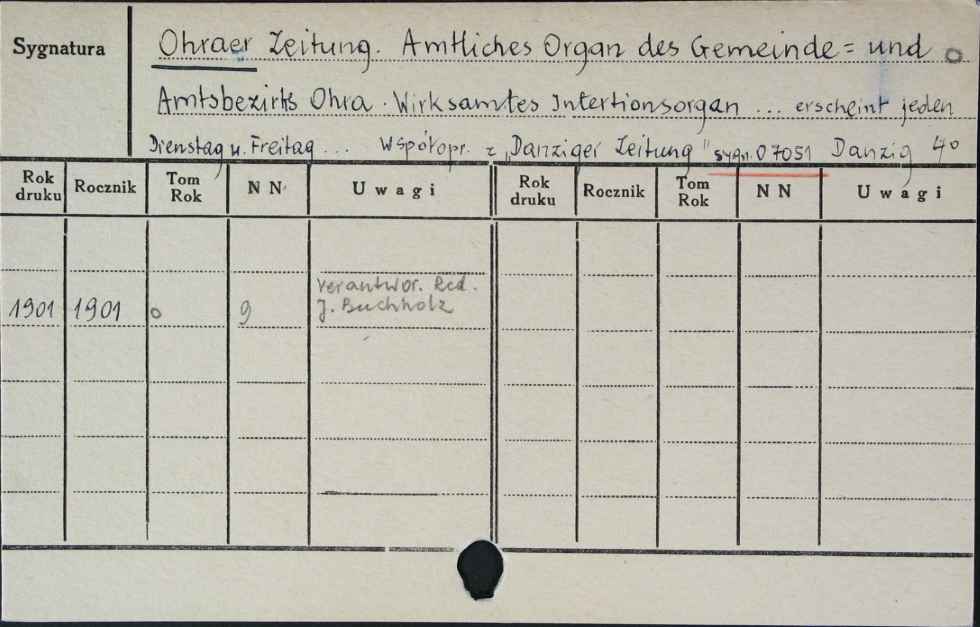 Sygnatura
Ohraer Zeitung. Amtliches Organ des Gemeinde= und
Amtsbezirks Ohra. Wirksamtes Intertionsorgan ... erscheint jeden
Dienstag u. Freitag ... Współopr. z „Danziger Zeitung" sygn. O 7051 Danzig 4°
Rok druku Rocznik Tom Rok N N Uwagi Rok druku Rocznik Tom Rok N N Uwagi
Verantwor. Red.
1901 1901 o 9 J. Buchholz